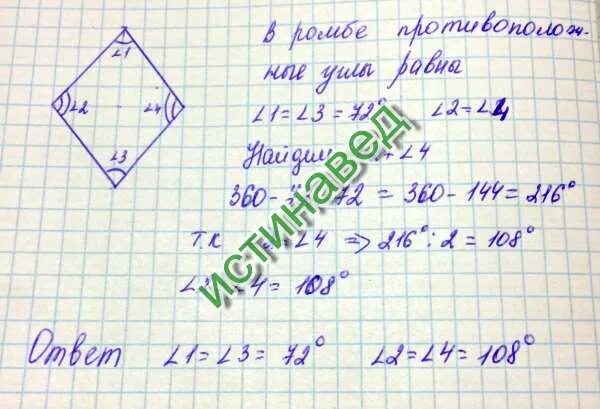 ∠1
∠2
∠4
∠3
В ромбе противополож-
ные углы равны
∠1 = ∠3 = 72° ∠2 = ∠4
Найдем ∠4
360 - 72 = 360 - 144 = 216°
т.к ∠4 => 216° : 2 = 108°
4 = 108°
Ответ ∠1 = ∠3 = 72° ∠2 = ∠4 = 108°
истинавед